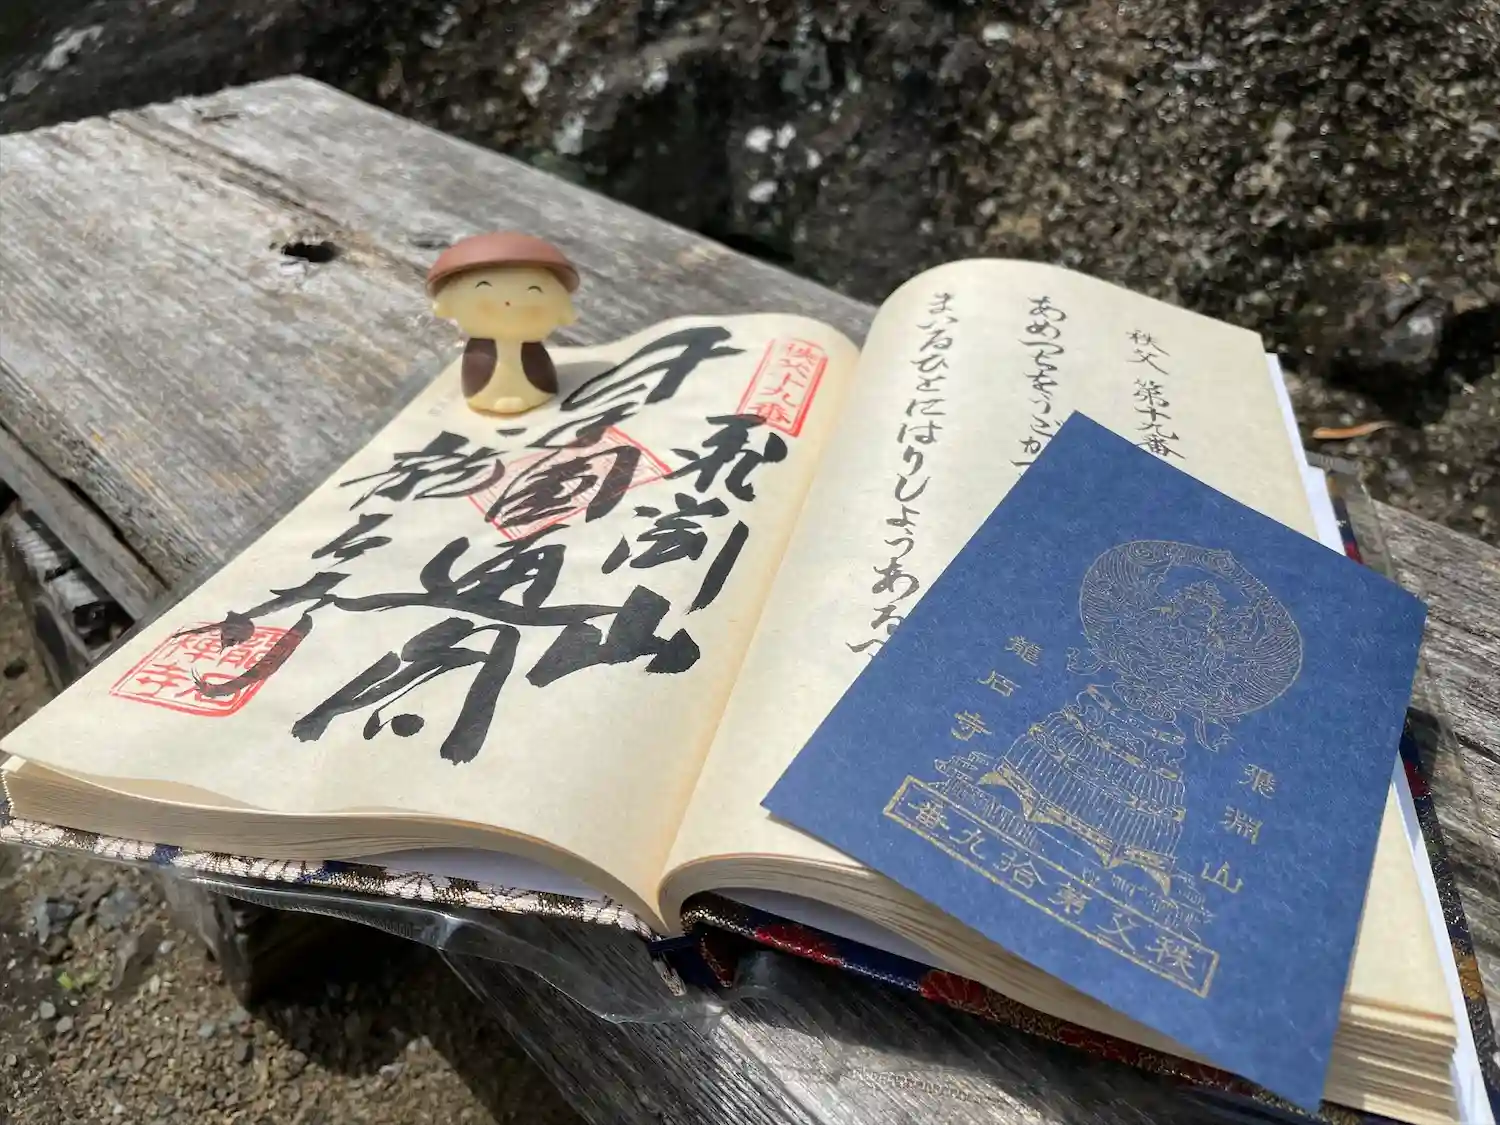 秩父 第十九番
あめつちをうごか
まいるひとにはりしようあるへ
秩父十九番
飛渕山
圓通閣
龍石寺
龍石禅寺
飛淵山
龍石寺
秩父第拾九番